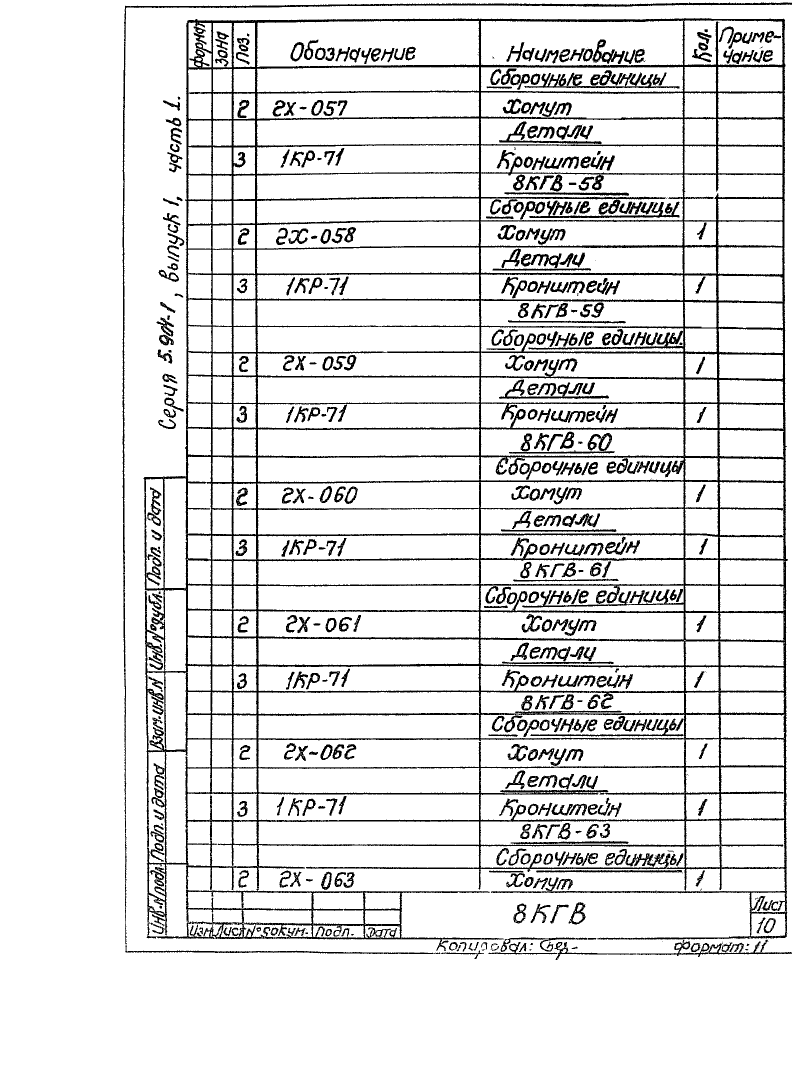 Формат Зона Поз. Обозначение Наименование Кол. Приме-
чание
Сборочные единицы
2 2Х-057 Хомут
Детали
3 1КР-71 Кронштейн
8КГВ-58
Сборочные единицы
2 2Х-058 Хомут 1
Детали
3 1КР-71 Кронштейн 1
8КГВ-59
Сборочные единицы
2 2Х-059 Хомут 1
Детали
3 1КР-71 Кронштейн 1
8КГВ-60
Сборочные единицы
2 2Х-060 Хомут 1
Детали
3 1КР-71 Кронштейн 1
8КГВ-61
Сборочные единицы
2 2Х-061 Хомут 1
Детали
3 1КР-71 Кронштейн 1
8КГВ-62
Сборочные единицы
2 2Х-062 Хомут 1
Детали
3 1КР-71 Кронштейн 1
8КГВ-63
Сборочные единицы
2 2Х-063 Хомут 1
Серия 5.904-1, выпуск 1, часть 1.
Подп. и дата
Инв.N°дубл.
Взам.инв.N
Подп. и дата
Инв.N подл.
Изм Лист N°докум. Подп. Дата
8КГВ
Лист
10
Копировал:
Формат: 11